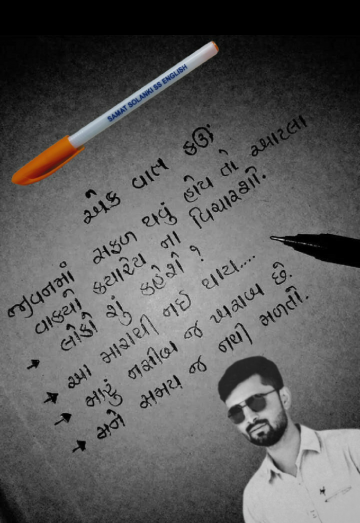 SAMAT SOLANKI SS ENGLISH
એક વાત કહું
જીવનમાં સફળ થવું હોય તો આટલા
વાક્યો ક્યારેય ના વિચારશો.
→ લોકો શું કહેશે ?
→ આ મારાથી નઈ થાય....
→ મારું નસીબ જ ખરાબ છે.
→ મને સમય જ નથી મળતો.